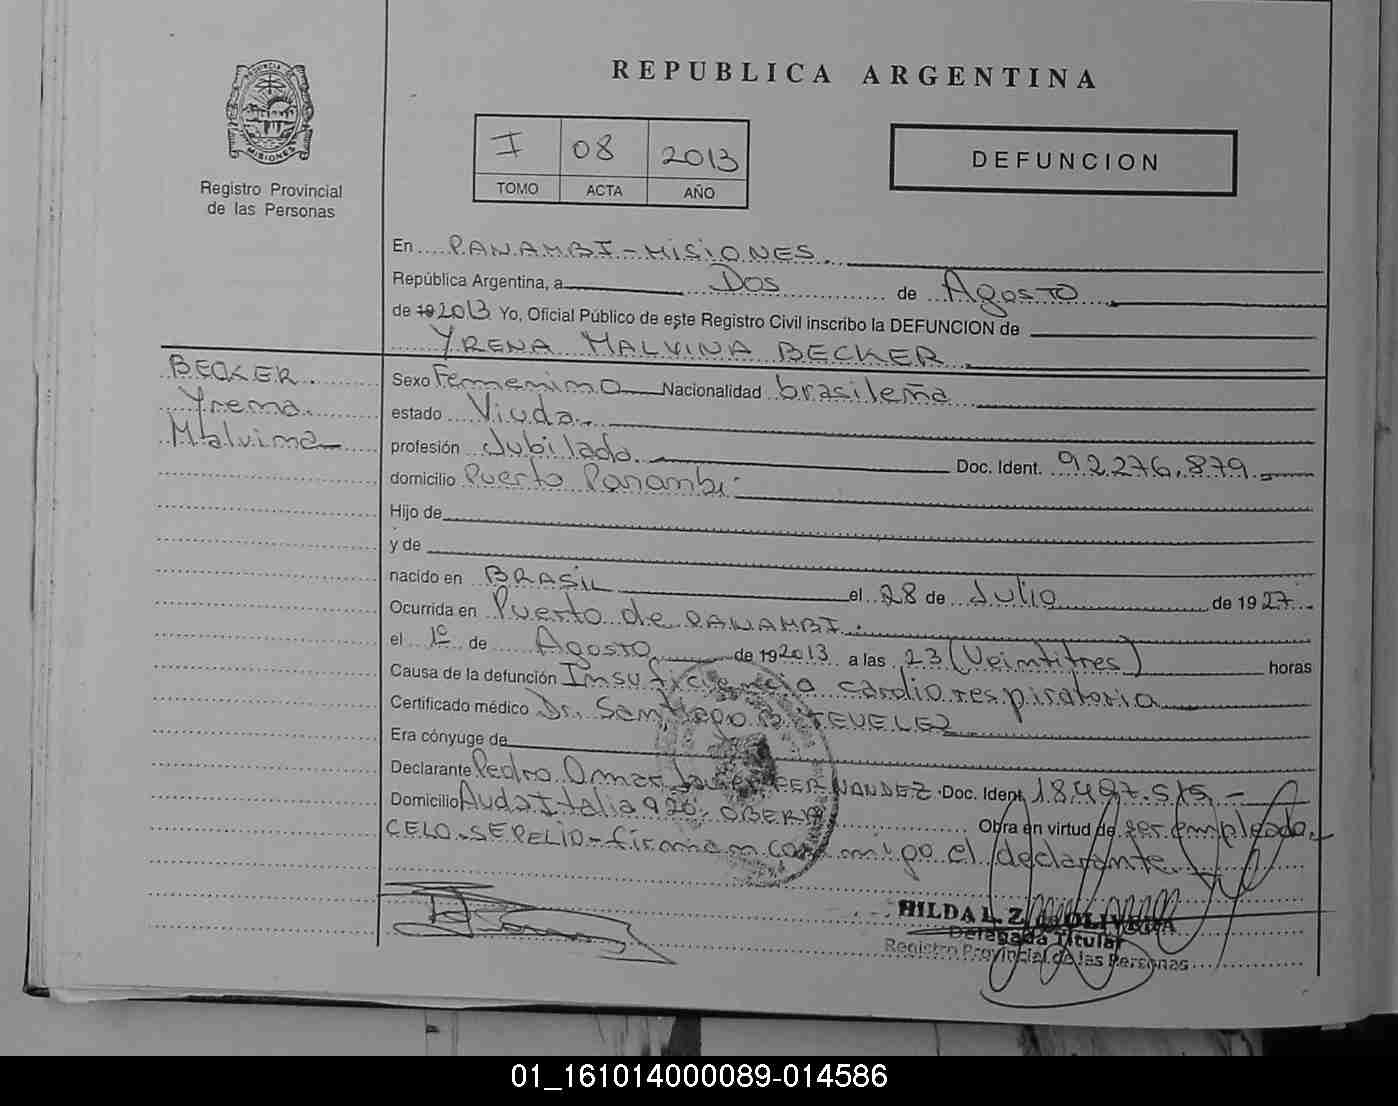 PROVINCIA DE
MISIONES
Registro Provincial
de las Personas
REPUBLICA ARGENTINA
I 08 2013
TOMO ACTA AÑO
DEFUNCION
En PANAMBI-MISIONES.
República Argentina, a Dos de Agosto
de 19 2013 Yo, Oficial Público de este Registro Civil inscribo la DEFUNCION de
YRENA MALVINA BECKER
BECKER
Yrena
Malvina
Sexo Femenino Nacionalidad brasileña
estado Viuda.
profesión Jubilada. Doc. Ident. 92.276.879.
domicilio Puerto Panambi
Hijo de
y de
nacido en BRASIL el 28 de Julio de 1927.
Ocurrida en Puerto de PANAMBI.
el 1º de Agosto de 19 2013 a las 23 (Veintitres) horas
Causa de la defunción Insuficiencia cardiorespiratoria
Certificado médico Dr. Santiago TEVELEZ
Era cónyuge de
Declarante Pedro Omar Javier FERNANDEZ. Doc. Ident. 18.497.515.-
Domicilio Avda Italia 926. OBERA Obra en virtud de ser empleado
CELO-SEPELIO-firman conmigo el declarante.
HILDA L. Z. de OLIVEIRA
Delegada Titular
Registro Provincial de las Personas
01_161014000089-014586